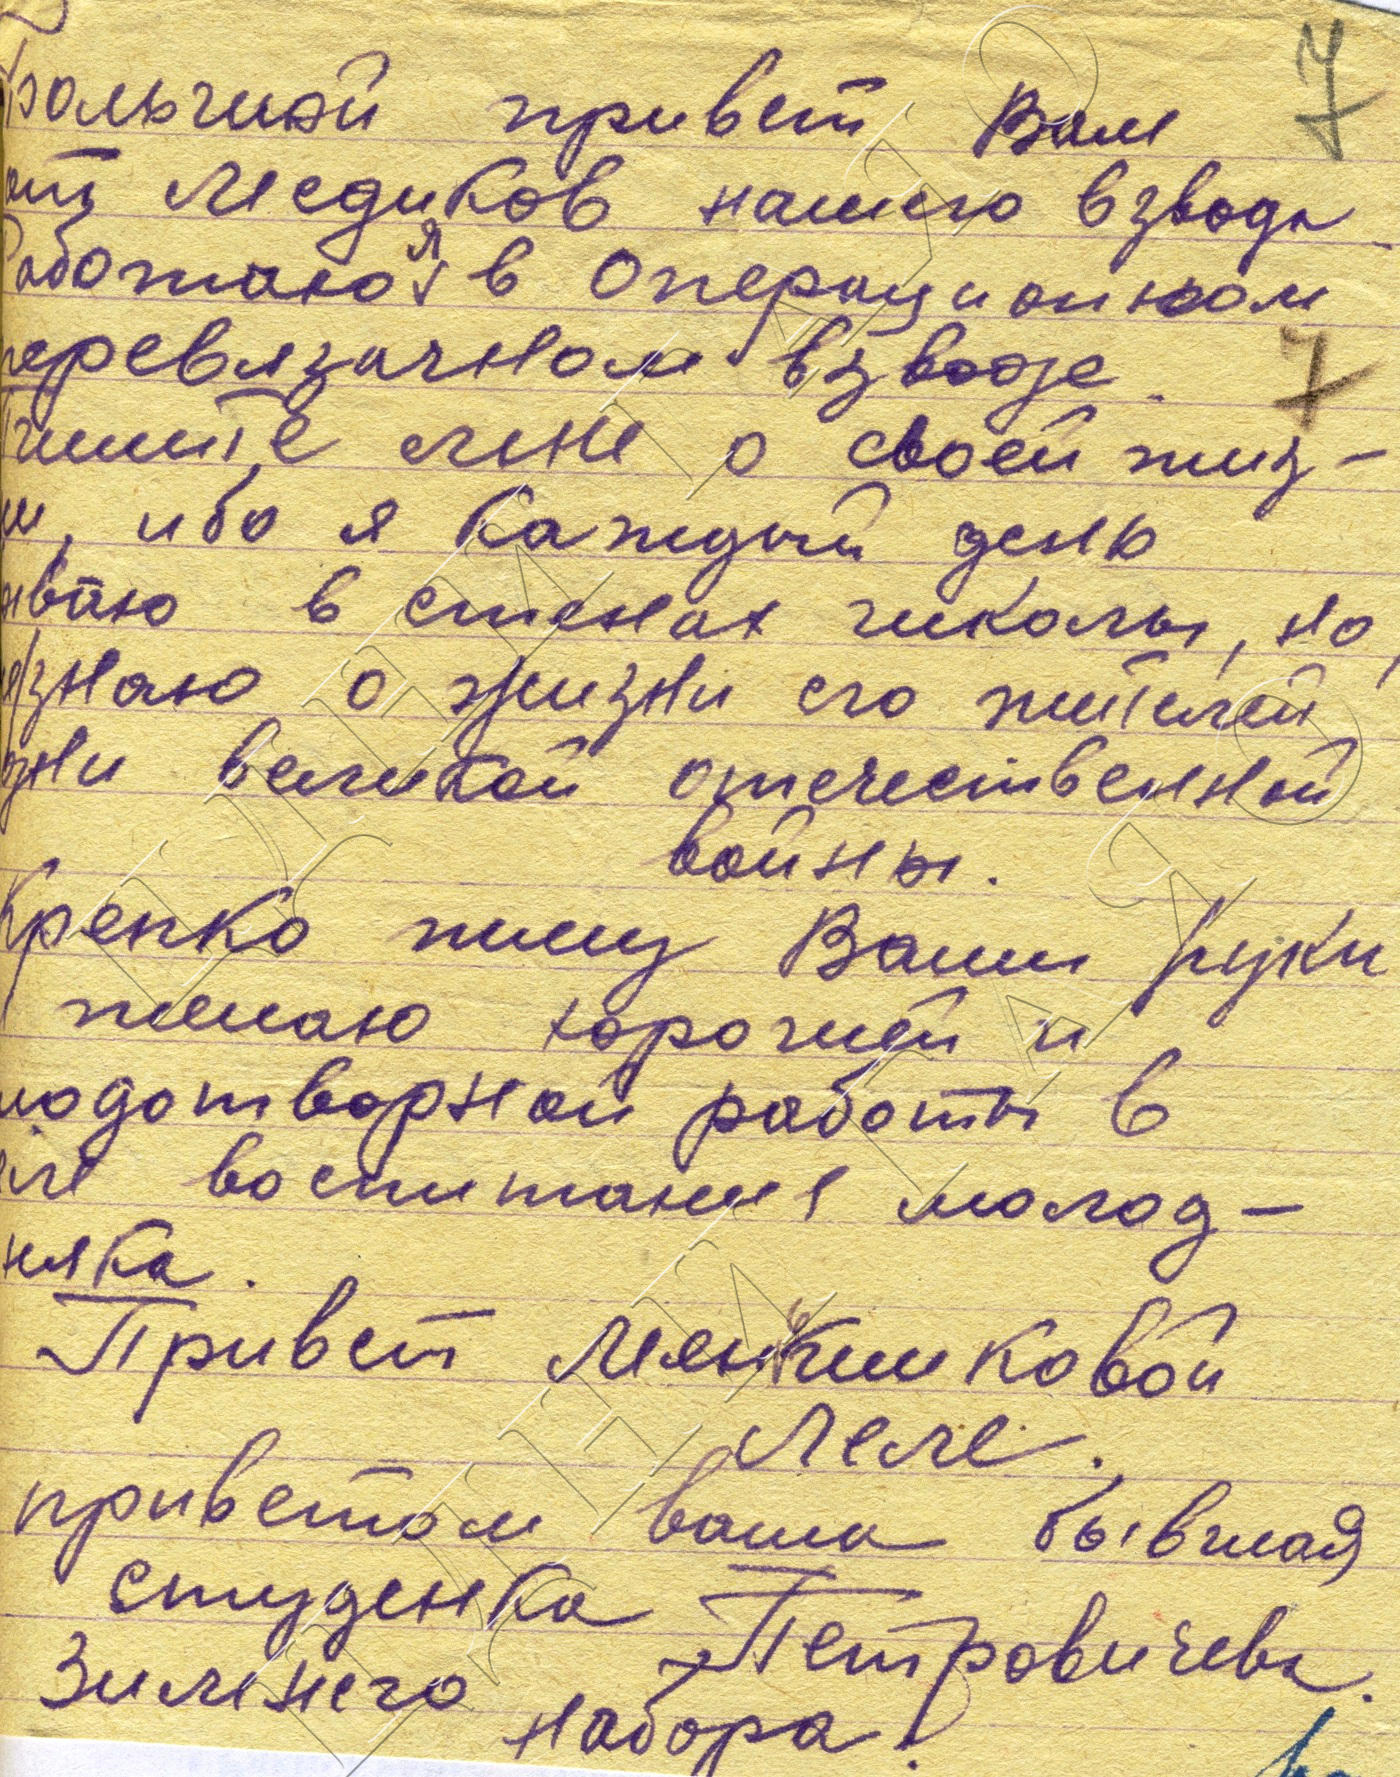 7
Большой привет Вам
от Медиков нашего взвода.
Работаю я в Операционном
перевязачном взводе.
7
Пишите мне о своей жиз-
ни, ибо я каждый день
в стенах школы, но,
знаю о жизни его жителей
дни великой отечественной
войны.
Крепко жму Ваши руки
желаю хорошей и
плодотворной работы в
деле воспитания молод-
няка.
Привет
Леле.
приветом ваша бывшая
студенка Петровичева.
Зимнего набора!